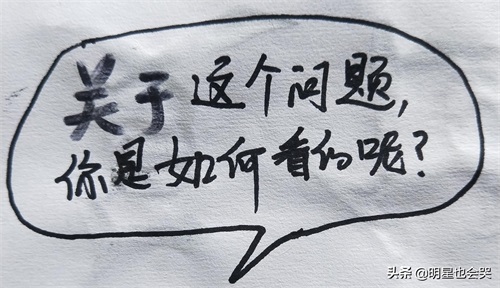 关于这个问题,
你是如何看的呢?
头条 @明星也会哭